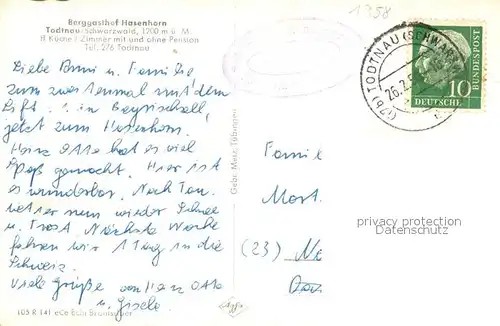 Berggasthof Hasenhorn
Todtnau-Schwarzwald, 1200 m ü. M.
ff Küche! Zimmer mit und ohne Pension
Tel. 276 Todtnau
Liebe u. Familie
zum zweitenmal mit dem
Lift. in Bayrischzell,
jetzt zum Hasenhorn.
Hans Otto hat es viel
Spaß gemacht. Hier ist
es wunderbar. Nach Tau-
wetter nun wieder Schnee
u. Frost. Nächste Woche
fahren wir 1 Tag in die
Schweiz.
Viele Grüße von Hans Otto
u. Gisela
105 R 141
Gebr. Metz, Tübingen
1958
(17b) TODTNAU (SCHWARZW
26.2.5
DEUTSCHE
BUNDESPOST
10
Famil
Mart
(23) Ne
privacy protection
Datenschutz
Agfa